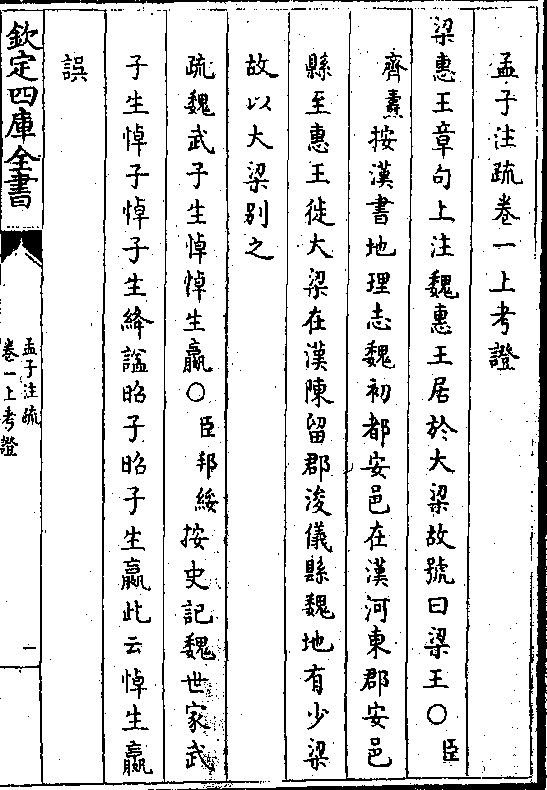 孟子注疏卷一上考證
梁惠王章句上注魏惠王居於大梁故號曰梁王○臣
齊燾按漢書地理志魏初都安邑在漢河東郡安邑
縣至惠王徙大梁在漢陳留郡浚儀縣魏地有少梁
故以大梁別之
疏魏武子生悼悼生嬴○臣邦綏按史記魏世家武
子生悼子悼子生絳諡昭子昭子生嬴此云悼生嬴
誤
欽定四庫全書
孟子注疏
卷一上考證
一